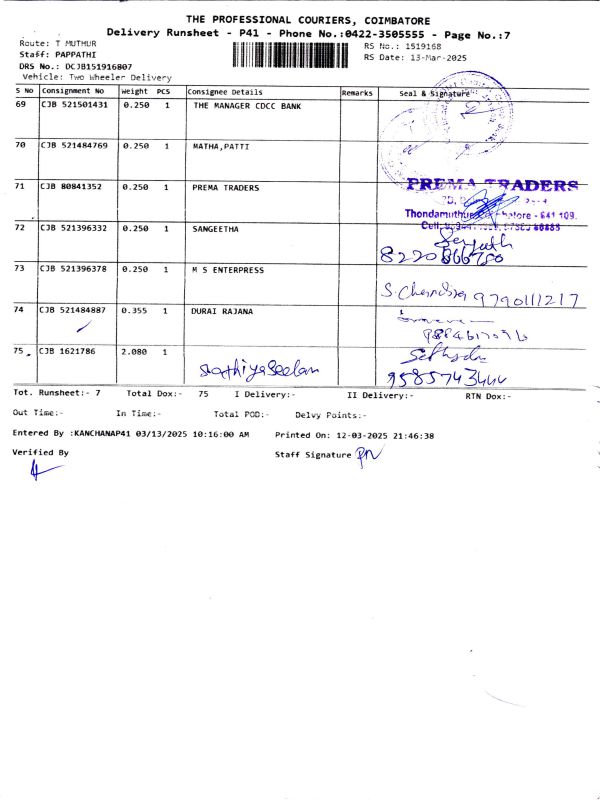 THE PROFESSIONAL COURIERS, COIMBATORE
Delivery Runsheet - P41 - Phone No.:0422-3505555 - Page No.:7
Route: T MUTHUR
RS No.: 1519168
Staff: PAPPATHI
RS Date: 13-Mar-2025
DRS No.: DCJB151916807
Vehicle: Two Wheeler Delivery
S No Consignment No Weight PCS Consignee Details Remarks Seal & Signature
69 CJB 521501431 0.250 1 THE MANAGER CDCC BANK
70 CJB 521484769 0.250 1 MATHA,PATTI
71 CJB 80841352 0.250 1 PREMA TRADERS
PREMA TRADERS
Thondamuthur
- 641 109.
Cell:
72 CJB 521396332 0.250 1 SANGEETHA
73 CJB 521396378 0.250 1 M S ENTERPRESS
9790111217
74 CJB 521484887 0.355 1 DURAI RAJANA
75 CJB 1621786 2.080 1
Sathiyaseelan
Tot. Runsheet:- 7 Total Dox:- 75 I Delivery:- II Delivery:- RTN Dox:-
Out Time:- In Time:- Total POD:- Delvy Points:-
Entered By :KANCHANAP41 03/13/2025 10:16:00 AM Printed On: 12-03-2025 21:46:38
Verified By Staff Signature